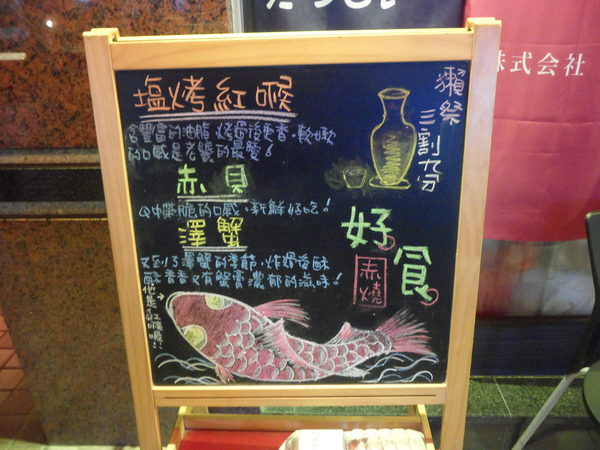 塩烤紅喉
含豐富的油脂,烤過後更香,軟嫩
的口感是老饕的最愛!
赤貝
Q中帶脆的口感,新鮮好吃!
澤蟹
又到了澤蟹的季節,炸過後酥
酥香香又有蟹膏濃郁的滋味!
他是紅喉喔!
獺祭
三割九分
好食
赤燒
株式会社